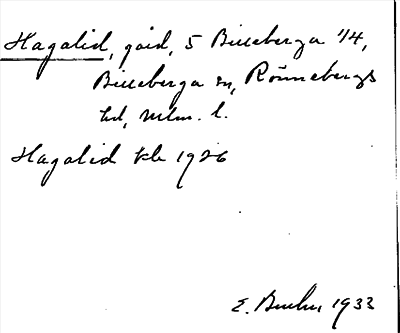 Hagalid, gård, 5 Billeberga 1/4,
Billeberga sn, Rönnebergs
hd, Mlm. l.
Hagalid tk 1926
E. 1933